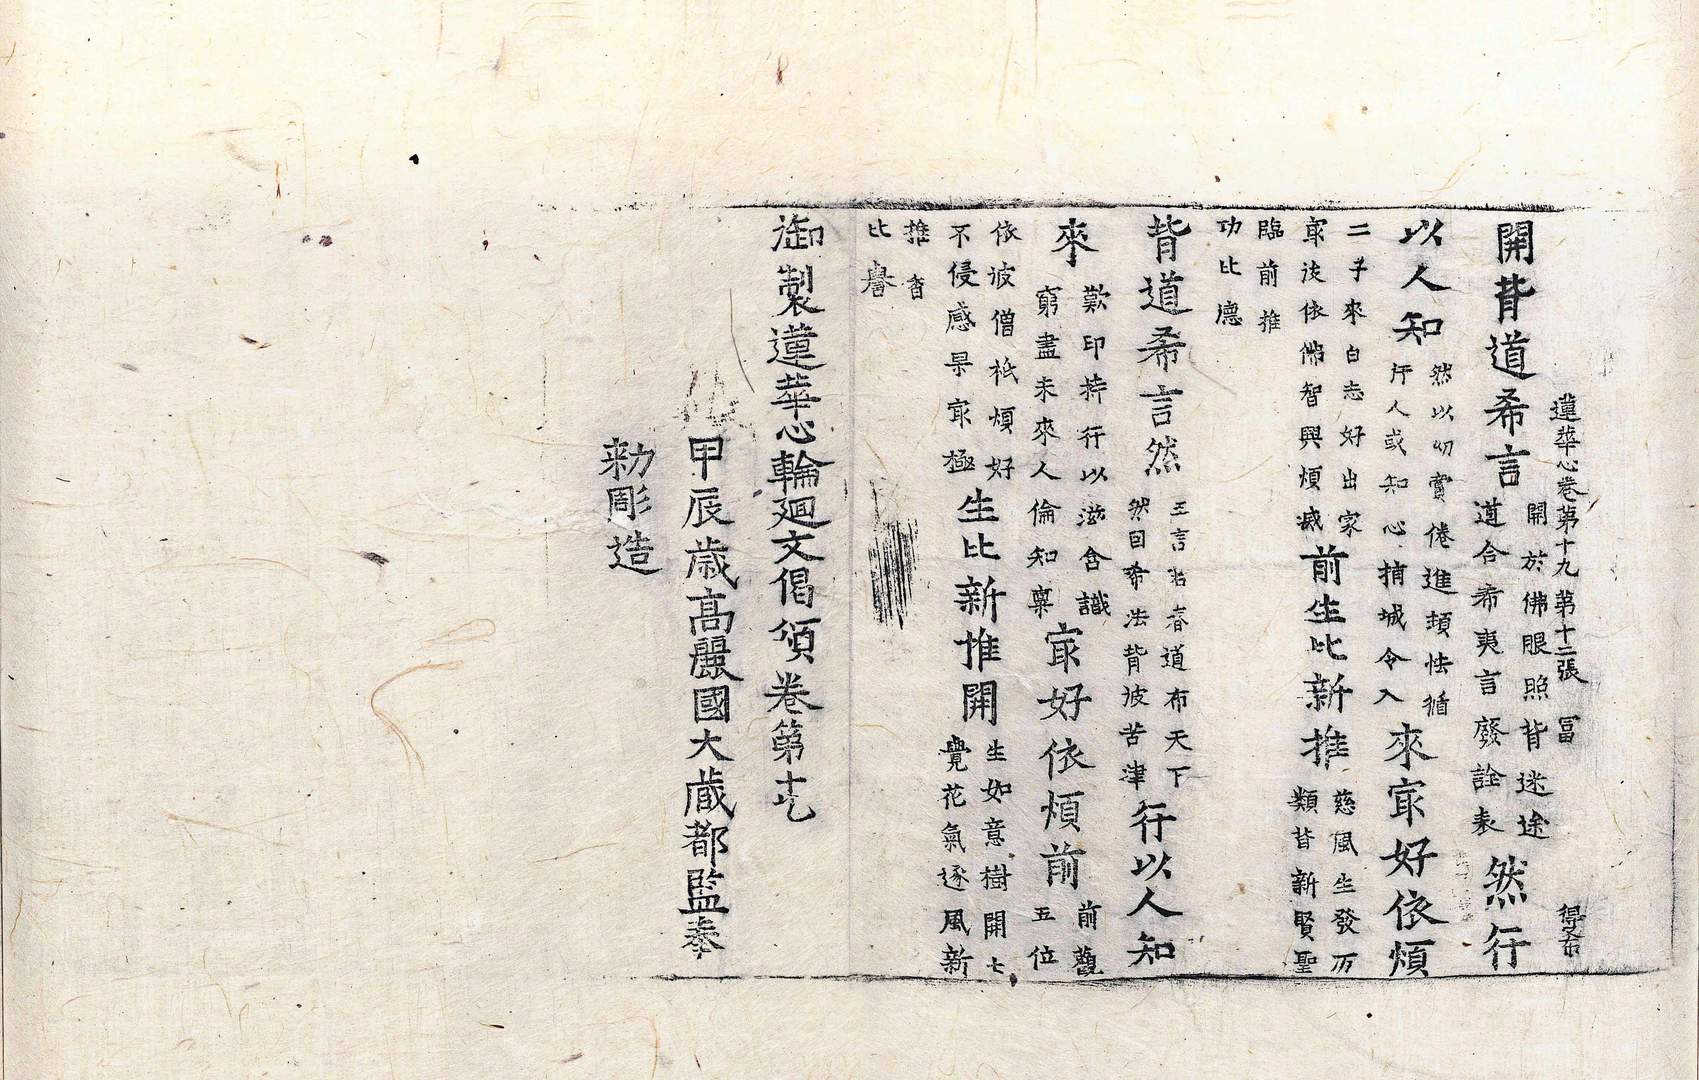 蓮華心卷第十九 第十二張 冨 得布
開背道希言 開於佛眼照背迷途
道合希夷言廢詮表 然行
以人知 然以切賞倦進頻怯循
行人或知心捐城令入 來㝡好依煩
二子來白志好出家
㝡後依佛智興煩滅 前生比新推 慈風生發万
類昔新賢聖
臨前推
功比德
背道希言然 王言㳂春道布天下
然回希法背彼苦津 行以人知
來 歎印持行以滋含識
窮盡未來人倫知稟 㝡好依煩前 前觀
五位
依彼僧祇煩好
不侵感果㝡極 生比新推開 生如意樹開七
覺花氣逐風新
推 香
比 馨
御製蓮華心輪廻文偈頌卷第十九
甲辰歲高麗國大藏都監奉
勅彫造